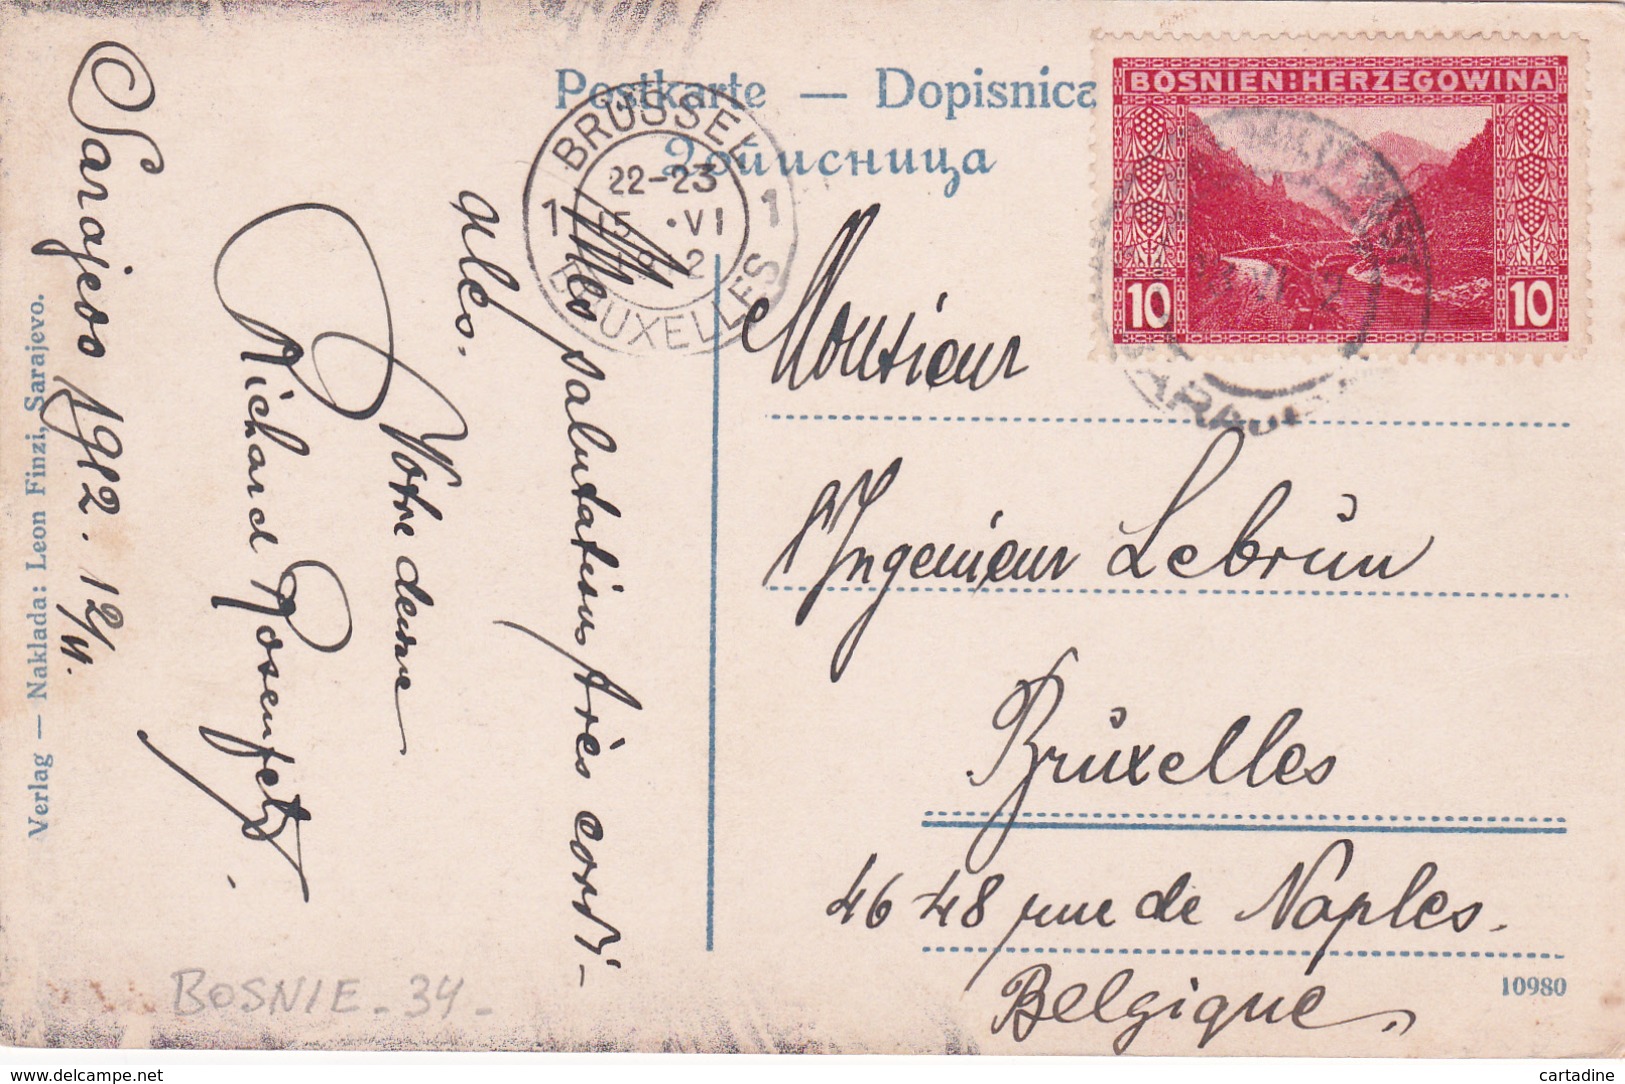 Postkarte — Dopisnica
Дописница
BOSNIEN-HERZEGOWINA
10 10
BRÜSSEL
1 1
22-23
15 .VI
1912
BRUXELLES
SARAJEVO
Sarajevo 1912. 12/VI.
Mes salutations très cordi-
ales.
Votre
Richard Rosenfeld
Monsieur
l'Ingenieur Lebrun
Bruxelles
46 48 rue de Naples.
Belgique.
Verlag — Naklada: Leon Finzi, Sarajevo.
10980
BOSNIE - 34 -
www.delcampe.net
cartadine